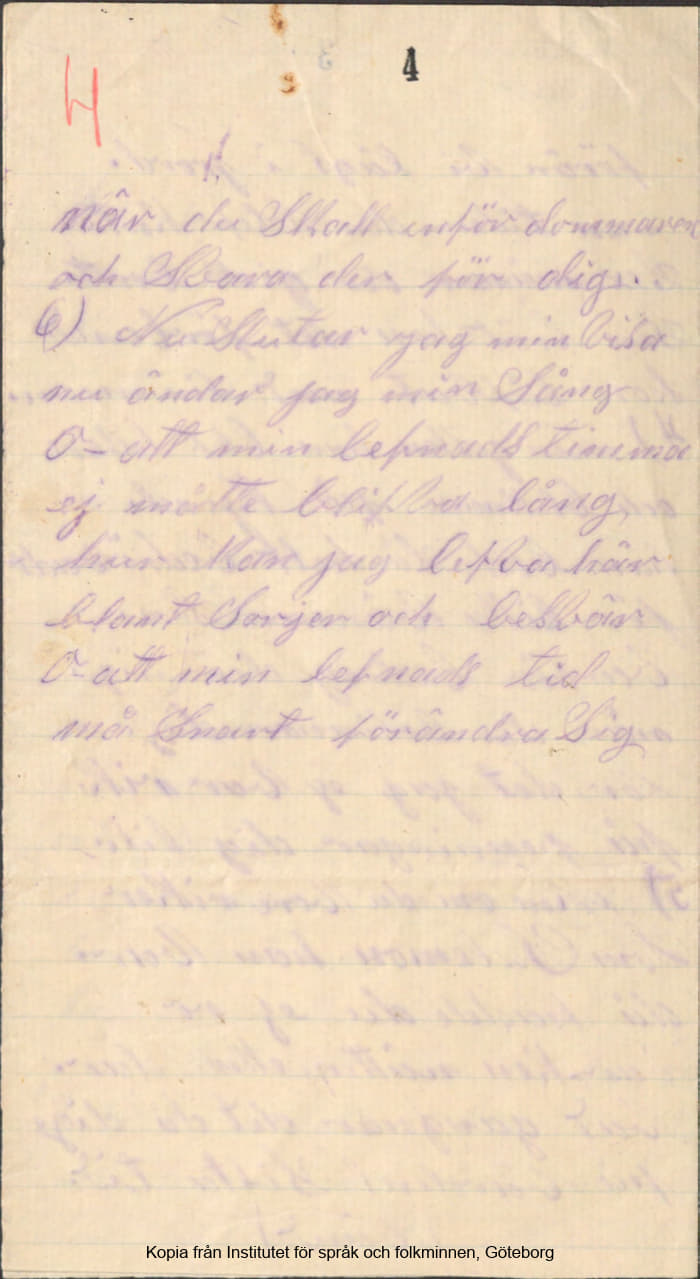 4
H
när du Skall inför dommaren
och Svara der för dig.
6) Nu Slutar jag min visa
nu ändar jag min Sång
O- att min lefnads timma
ej måtte blifva lång,
hur kan jag lefva här
blant Sorjer och besvär
O- att min lefnads tid
må Snart förändra Sig
Kopia från Institutet för språk och folkminnen, Göteborg